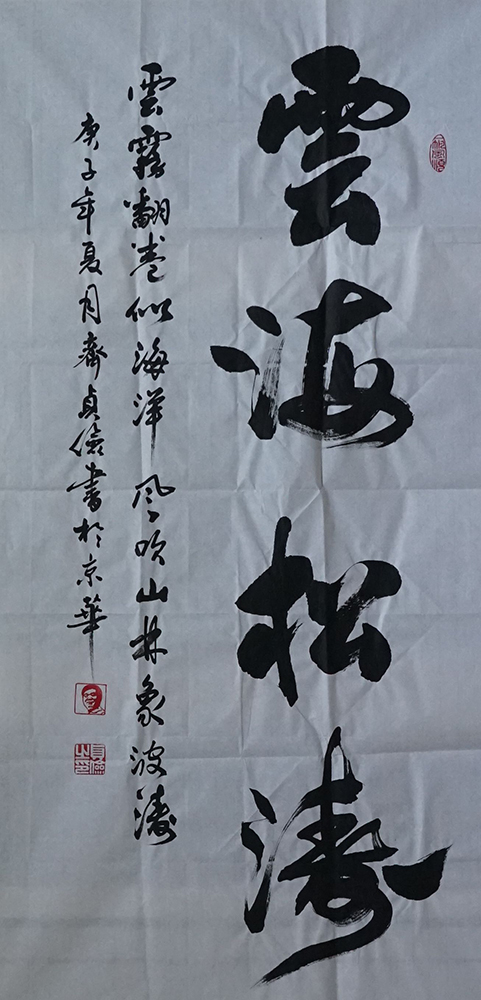 雲海松濤
雲霧翻卷似海洋 風吹山林象波濤
庚子年夏月齊貞儉書於京華